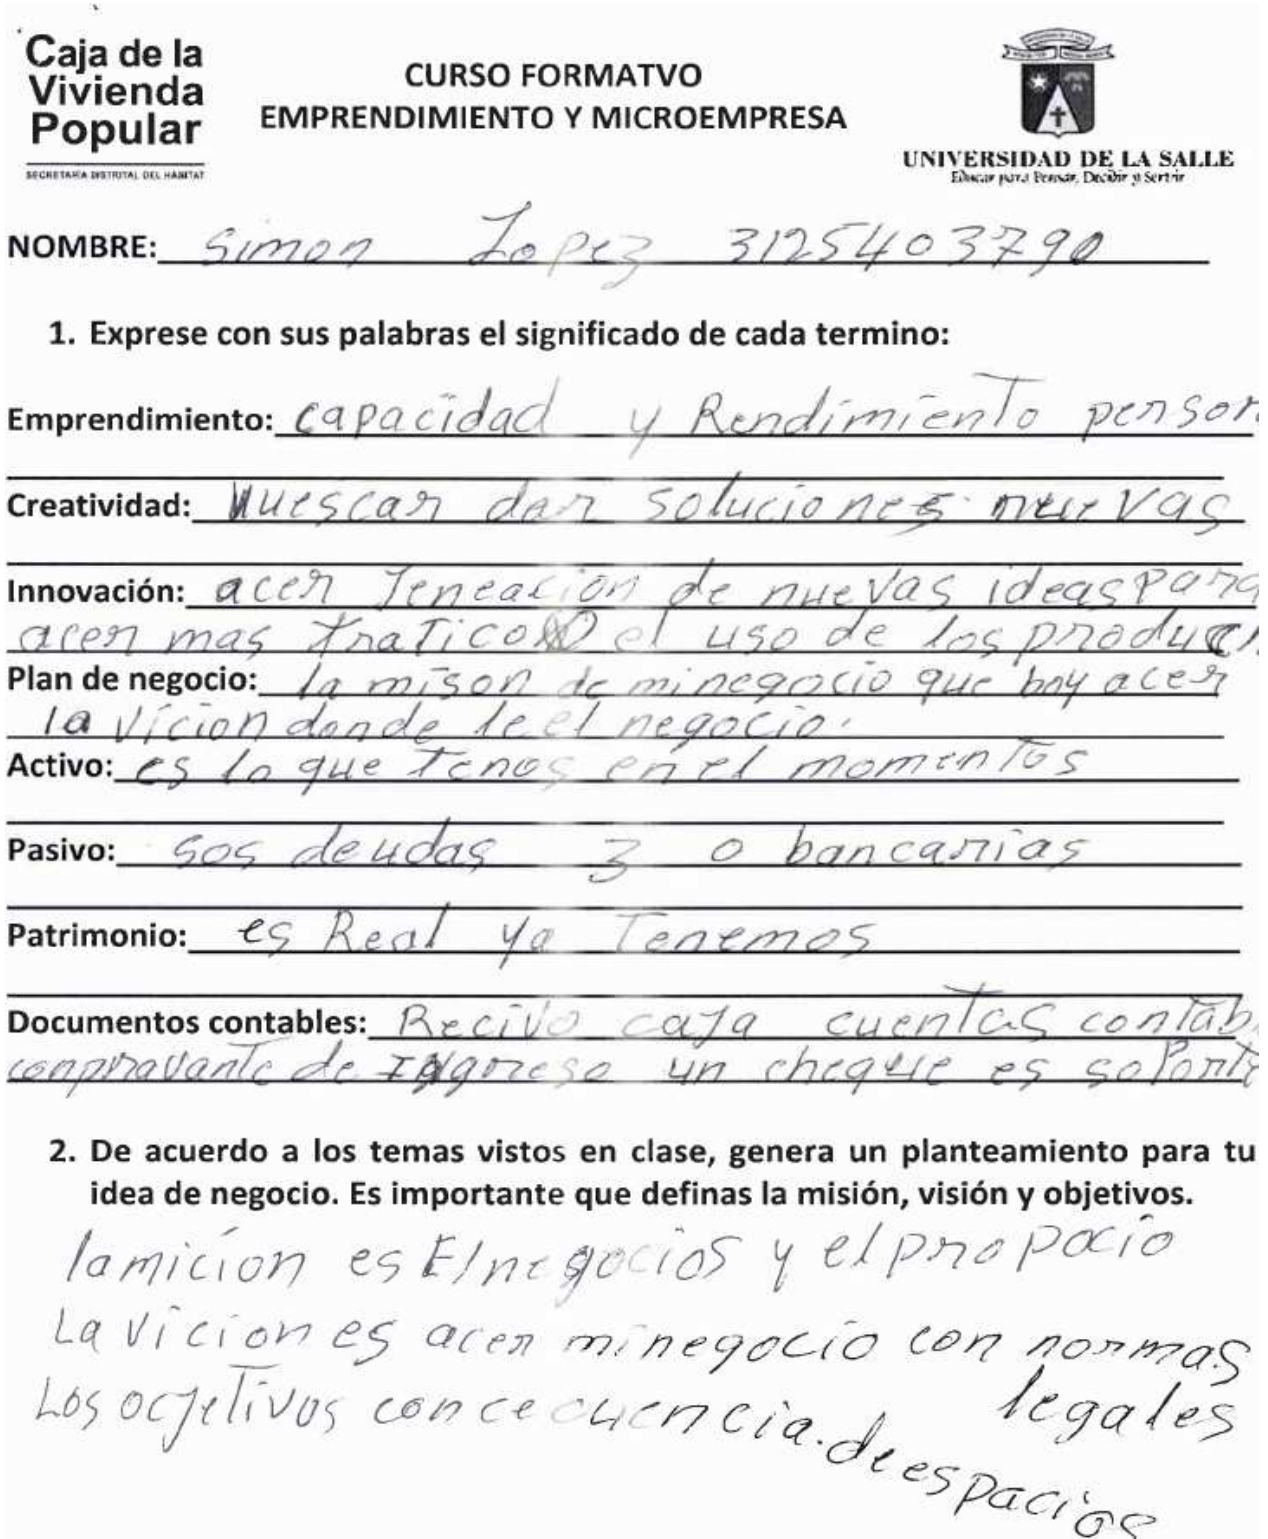 Caja de la
Vivienda
Popular
SECRETARÍA DISTRITAL DEL HÁBITAT
CURSO FORMATVO
EMPRENDIMIENTO Y MICROEMPRESA
UNIVERSIDAD DE LA SALLE
Educar para Pensar, Decidir y Servir
NOMBRE: Simon Lopez 3125403790
1. Exprese con sus palabras el significado de cada termino:
Emprendimiento: capacidad y Rendimiento person
Creatividad: dar soluciones nuevas
Innovación: acer de nuevas ideas para
acer mas el uso de los produc
Plan de negocio: la mison de minegocio que boy acer
la vicion donde le el negocio.
Activo: es lo que tenos en el momentos
Pasivo: sos deudas 3 o bancarias
Patrimonio: es Real ya Tenemos
Documentos contables: Recivo caja cuentas contab
compravante de Ingreso un cheque es soporte
2. De acuerdo a los temas vistos en clase, genera un planteamiento para tu
idea de negocio. Es importante que definas la misión, visión y objetivos.
lamicion es El negocios y el propocio
La vicion es acer minegocio con normas
legales
Los ocjetivos concecuencia. de espacios